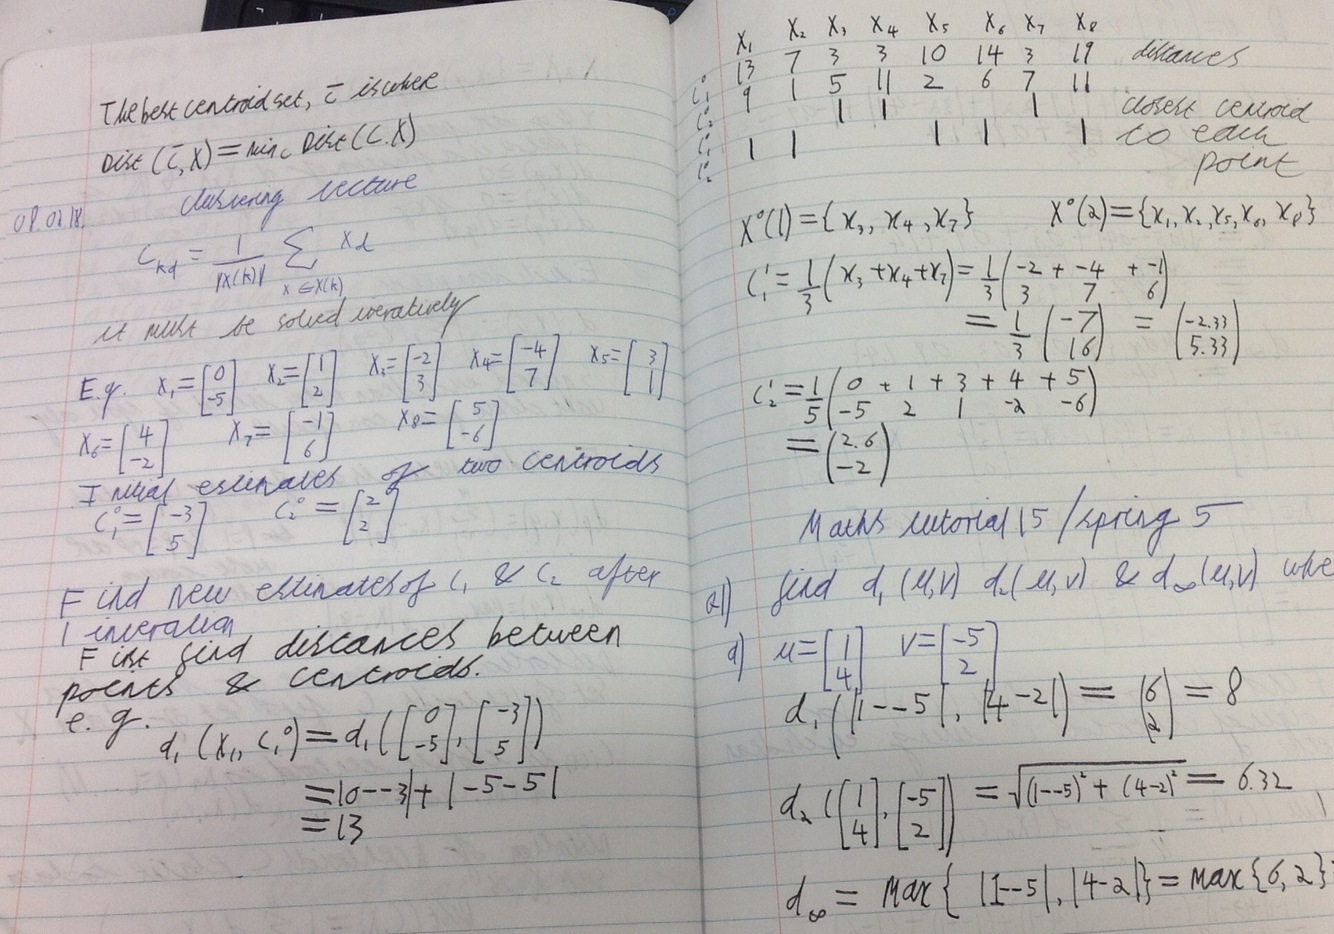 The best centroid set, c̄ is where
Dist (c̄, X) = min_c Dist (C, X)
08.02.18. clustering lecture
C_kd = 1/|X(k)| Σ_{x ∈ X(k)} x_d
it must be solved iteratively
E.g. x₁=[0 -5] x₂=[1 2] x₃=[-2 3] x₄=[-4 7] x₅=[3 1]
x₆=[4 -2] x₇=[-1 6] x₈=[5 -6]
Initial estimates of two centroids
C₁⁰=[-3 5] C₂⁰=[2 2]
Find new estimates of C₁ & C₂ after
1 interation
First find distances between
points & centroids.
e.g.
d₁ (x₁, C₁⁰) = d₁([0 -5], [-3 5])
= |0--3| + |-5-5|
= 13
X₁ X₂ X₃ X₄ X₅ X₆ X₇ X₈
C₁⁰ 13 7 3 3 10 14 3 19 distances
C₂⁰ 9 1 5 11 2 6 7 11
C₁⁰ 1 1 1 closest centroid
C₂⁰ 1 1 1 1 1 to each
point
X⁰(1) = {x₃, x₄, x₇} X⁰(2) = {x₁, x₂, x₅, x₆, x₈}
C₁¹ = 1/3 (x₃ + x₄ + x₇) = 1/3 (-2 + -4 + -1 / 3 7 6)
= 1/3 (-7 16) = (-2.33 5.33)
C₂¹ = 1/5 (0 + 1 + 3 + 4 + 5 / -5 2 1 -2 -6)
= (2.6 -2)
Maths tutorial 15 / spring 5
Q1) find d₁ (u,v) d₂ (u,v) & d∞ (u,v) where
a) u=[1 4] v=[-5 2]
d₁ (|1--5|, |4-2|) = (6 2) = 8
d₂ ([1 4], [-5 2]) = √((1--5)² + (4-2)²) = 6.32
d∞ = max{ |1--5|, |4-2|} = max{6, 2}